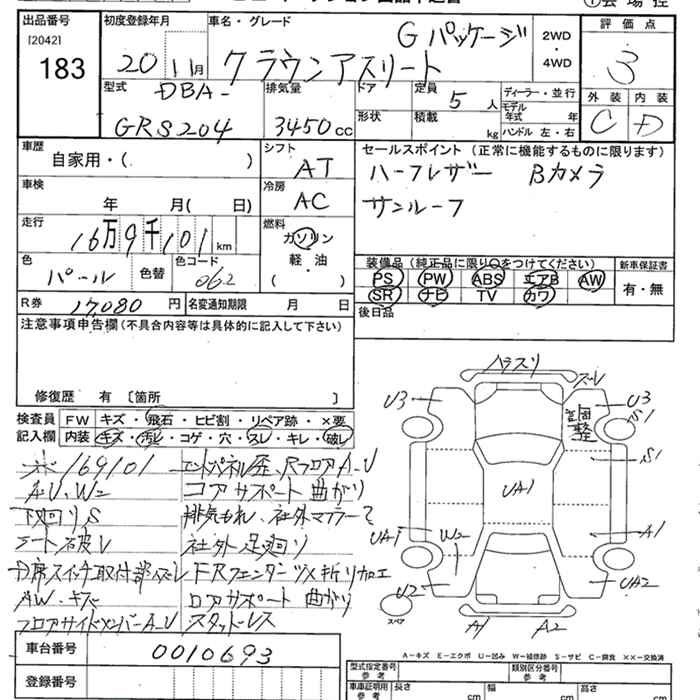 出品番号
[2042]
183
初度登録年月
20年11月
車名・グレード
Gパッケージ
クラウンアスリート
2WD
・
4WD
評価点
3
外装 内装
C D
型式
DBA-
GRS204
排気量
3450cc
ドア
形状
定員 5人
積載 kg
ディーラー・並行
モデル
年式 年
ハンドル 左・右
車歴
自家用・( )
シフト
AT
冷房
AC
車検
年 月( 日)
走行
16万9千101km
燃料
ガソリン
軽・油
( )
色
パール
色替
色コード
062
R券 17,080円
名変通知期限 月 日
セールスポイント(正常に機能するものに限ります)
ハーフレザー Bカメラ
サンルーフ
装備品(純正品に限り○をつけてください)
PS PW ABS エアB AW
SR ナビ TV カワ
新車保証書
有・無
後日品
注意事項申告欄(不具合内容等は具体的に記入して下さい)
修復歴 有 〔箇所 〕
検査員
記入欄
FW キズ・飛石・ヒビ割・リペア跡・×要
内装 キズ・汚レ・コゲ・穴・スレ・キレ・破レ
169101
AU、W2
下廻りS
シート破レ
内席スイッチ取付部ズレ
AW・キズ
フロアサイドメンバーA-U
コアサポート曲がり
排気もれ、社外マフラー
社外足廻り
コアサポート曲がり
スタッドレス
U3
U3
S1
S1
UA1
UA1
W2
A1
U2
UA2
A1
A2
スペア
A-キズ E-エクボ U-凹み W-補修跡 S-サビ C-腐食 ××-交換済
車台番号 0010693
登録番号
型式指定番号
参考
類別区分番号
参考
車庫証明用
参考
長さ cm
幅 cm
高さ cm